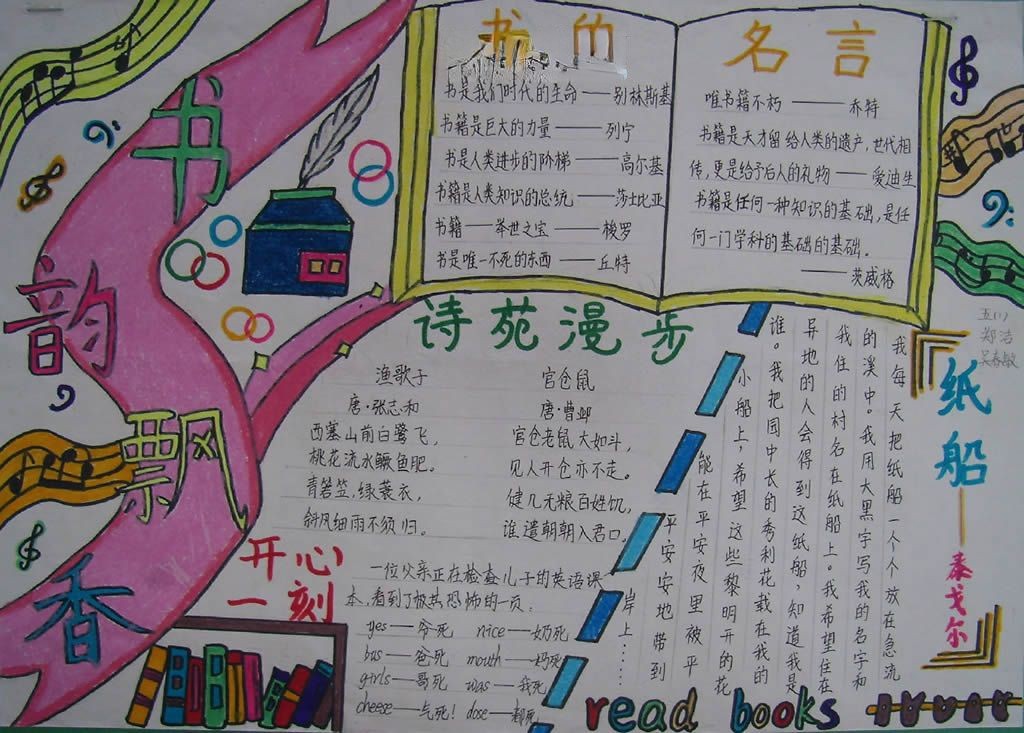 书韵飘香
书的
名言
书是我们时代的生命——别林斯基
书籍是巨大的力量——列宁
书是人类进步的阶梯——高尔基
书籍是人类知识的总统——莎士比亚
书籍——举世之宝——梭罗
书是唯一不死的东西——丘特
唯书籍不朽——乔特
书籍是天才留给人类的遗产,世代相
传,更是给予后人的礼物——爱迪生
书籍是任何一种知识的基础,是任
何一门学科的基础的基础。
——茨威格
诗苑漫步
渔歌子
唐·张志和
西塞山前白鹭飞,
桃花流水鳜鱼肥。
青箬笠,绿蓑衣,
斜风细雨不须归。
官仓鼠
唐·曹邺
官仓老鼠大如斗,
见人开仓亦不走。
健儿无粮百姓饥,
谁遣朝朝入君口。
五(1)
郑洁
吴春敏
纸船——泰戈尔
我每天把纸船一个个放在急流
的溪中。我用大黑字写我的名字和
我住的村名在纸船上。我希望住在
异地的人会得到这纸船,知道我是
谁。我把园中长的秀利花载在我的
小船上,希望这些黎明开的花
能在平安夜里被平
平安安地带到
岸上……
开心
一刻
一位父亲正在检查儿子的英语课
本,看到了极其恐怖的一页:
yes——爷死 nice——奶死
bus——爸死 mouth——妈死
girls——哥死 was——我死
cheese——气死! dose——都死
read books